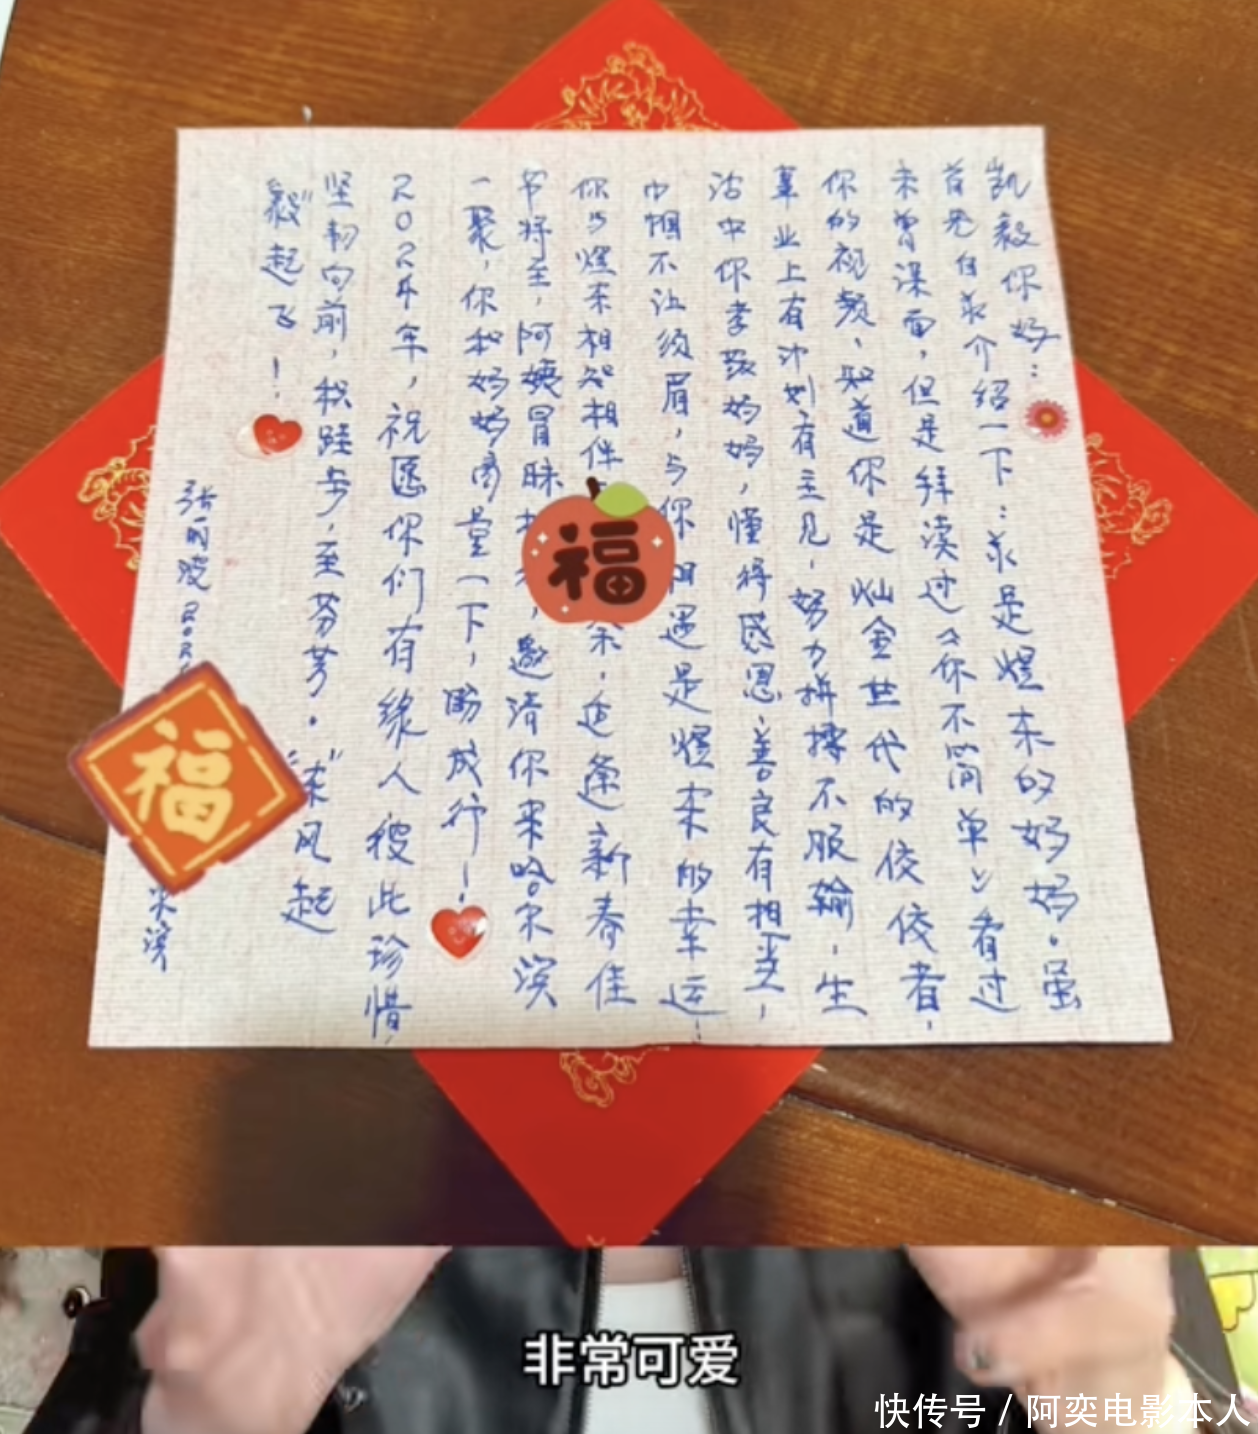 凯毅你好：
首先自我介绍一下：我是煜东的妈妈。虽
未曾谋面，但是拜读过《你不简单》看过
你的视频、知道你是灿金世代的佼佼者，
事业上有计划有主见，努力拼搏不服输，生
活中你孝敬妈妈，懂得感恩善良有担当，
巾帼不让须眉，与你相遇是煜东的幸运！
你与煜东相知相伴 余，适逢新春佳
节将至，阿姨冒昧 ，邀请你来哈尔滨
一聚，你和妈妈商量一下，盼成行！
2024年，祝愿你们有缘人彼此珍惜，
坚韧向前，积跬步，至芬芳。“东”风起
“毅”起飞！
张 202
尔滨
福
福
非常可爱
快传号 / 阿奕电影本人